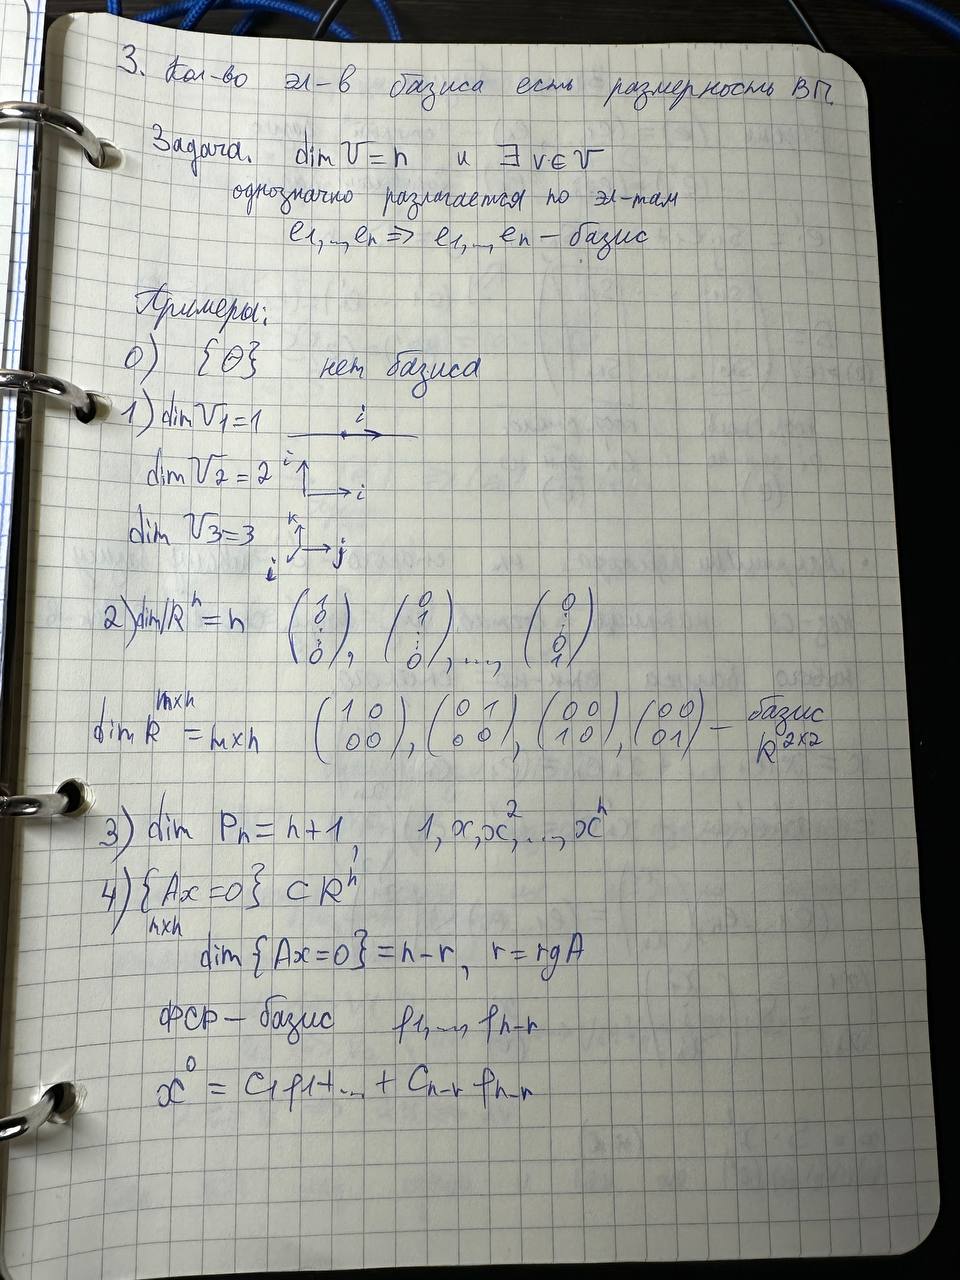 3. Кол-во эл-в базиса есть размерность ВП.
Задача. dim V = n и ∃ v ∈ V
однозначно разлагается по эл-там
e₁,..,eₙ ⇒ e₁,..,eₙ – базис
Примеры:
0) {Θ} нет базиса
1) dim V₁=1 i
dim V₂ = 2 i i
dim V₃=3 k j i
2) dim ℝⁿ = n (1 0 ⋮ 0), (0 1 ⋮ 0), ..., (0 ⋮ 0 1)
dim R^{m×n} = m×n (1 0 0 0), (0 1 0 0), (0 0 1 0), (0 0 0 1) – базис R^{2×2}
3) dim Pₙ = n+1, 1, x, x², ..., xⁿ
4) {Ax=0} ⊂ Rⁿ
m×n
dim {Ax=0} = n-r, r = rgA
ФСР – базис φ₁,..., φₙ₋ᵣ
x⁰ = C₁φ₁+... + Cₙ₋ᵣ φₙ₋ᵣ